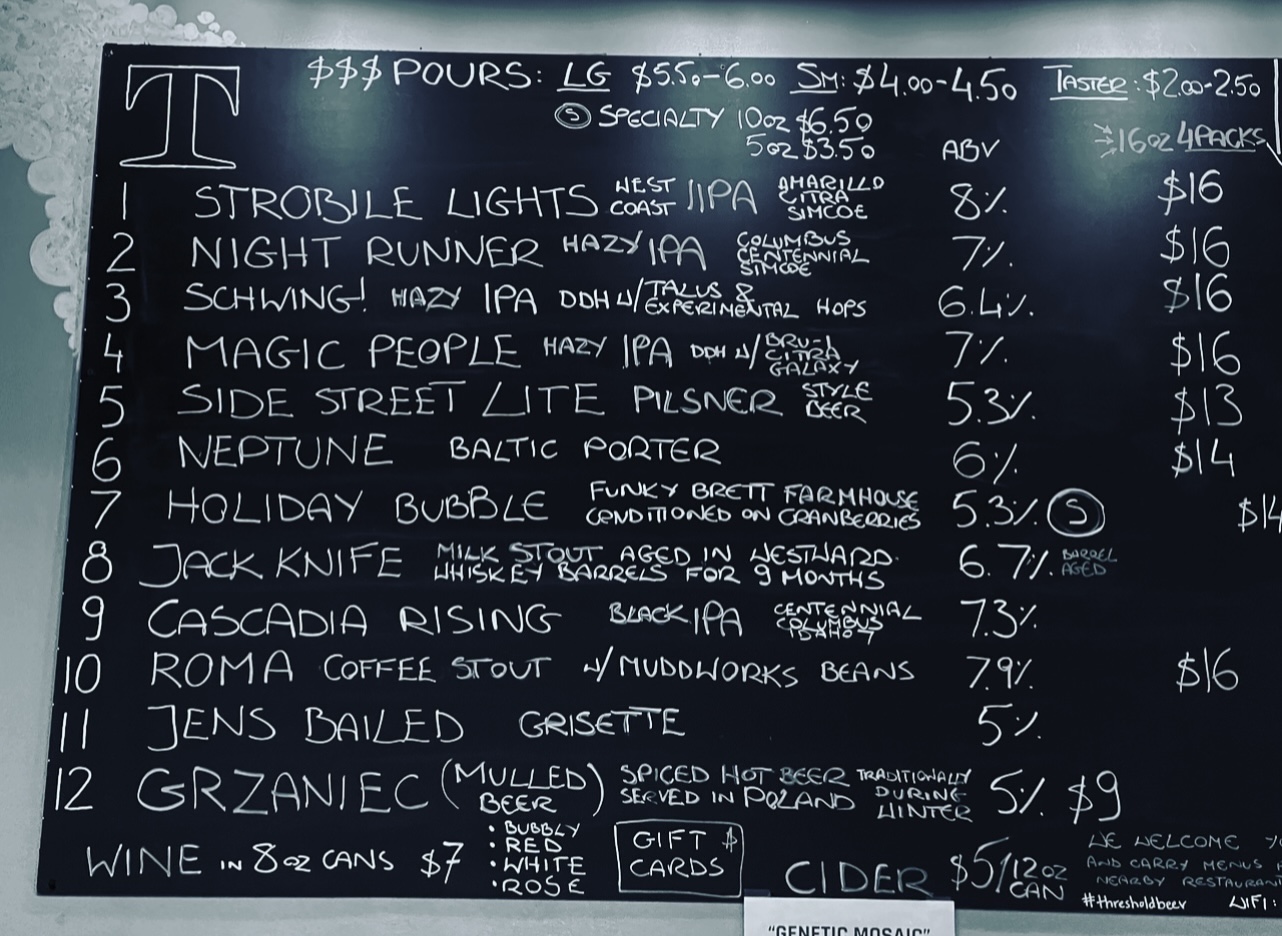 T
$$$ POURS: LG $5.50-6.00 SM: $4.00-4.50 TASTER: $2.00-2.50
Ⓢ SPECIALTY 10oz $6.50
5oz $3.50
ABV
16oz 4PACKS
1 STROBILE LIGHTS WEST COAST IIPA AMARILLO CITRA SIMCOE 8% $16
2 NIGHT RUNNER HAZY IPA COLUMBUS CENTENNIAL SIMCOE 7% $16
3 SCHWING! HAZY IPA DDH W/ TALUS & EXPERIMENTAL HOPS 6.4% $16
4 MAGIC PEOPLE HAZY IPA DDH W/ BRU-1 CITRA GALAXY 7% $16
5 SIDE STREET LITE PILSNER STYLE BEER 5.3% $13
6 NEPTUNE BALTIC PORTER 6% $14
7 HOLIDAY BUBBLE FUNKY BRETT FARMHOUSE CONDITIONED ON CRANBERRIES 5.3% Ⓢ $14
8 JACK KNIFE MILK STOUT AGED IN WESTWARD WHISKEY BARRELS FOR 9 MONTHS 6.7% BARREL AGED
9 CASCADIA RISING BLACK IPA CENTENNIAL COLUMBUS IDAHO 7 7.3%
10 ROMA COFFEE STOUT W/ MUDDWORKS BEANS 7.9% $16
11 JENS BAILED GRISETTE 5%
12 GRZANIEC (MULLED BEER) SPICED HOT BEER TRADITIONALLY SERVED IN POLAND DURING WINTER 5% $9
WINE IN 8 oz CANS $7
• BUBBLY
• RED
• WHITE
• ROSE
GIFT $
CARDS
CIDER $5/12oz CAN
WE WELCOME
AND CARRY MENUS
NEARBY RESTAURAN
#thresholdbeer WIFI:
"GENETIC MOSAIC"